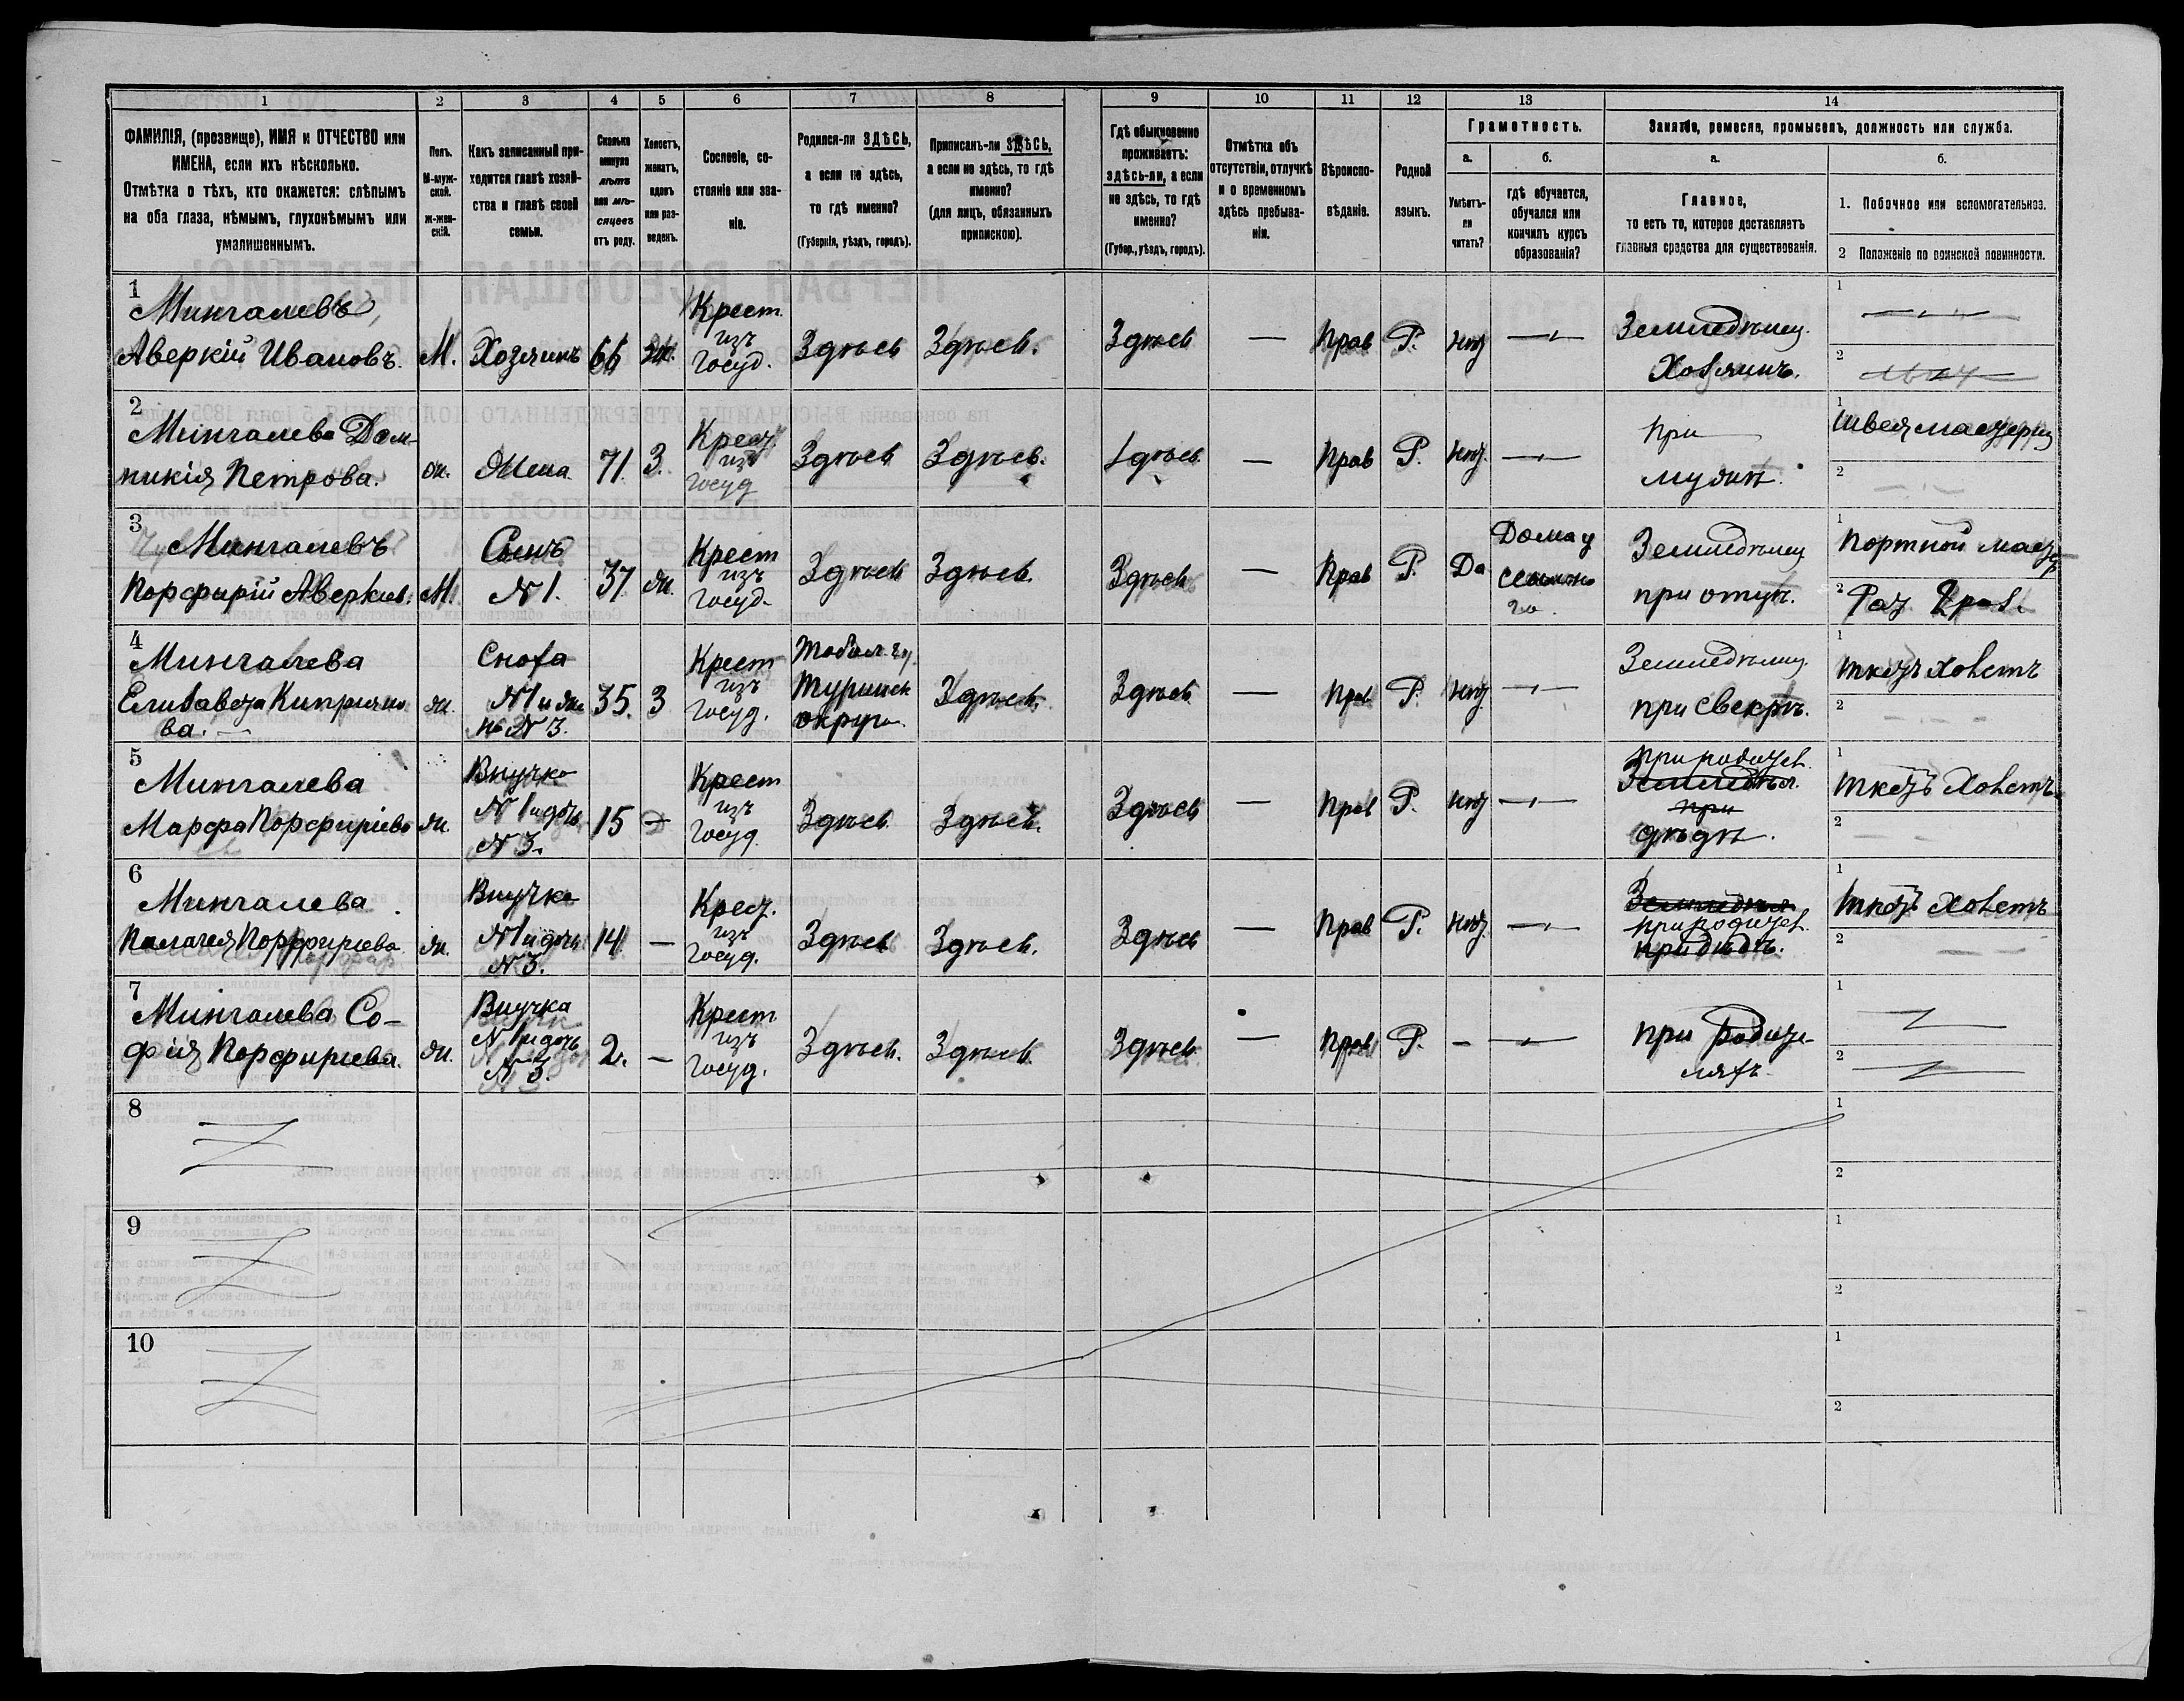 1 2 3 4 5 6 7 8 9 10 11 12 13 14
ФАМИЛІЯ, (прозвище), ИМЯ и ОТЧЕСТВО или
ИМЕНА, если ихъ нѣсколько.
Отмѣтка о тѣхъ, кто окажется: слѣпымъ
на оба глаза, нѣмымъ, глухонѣмымъ или
умалишеннымъ.
Полъ.
М-муж-
ской.
ж-жен-
скій.
Какъ записанный при-
ходится главѣ хозяй-
ства и главѣ своей
семьи.
Сколько
минуло
лѣтъ
или мѣ-
сяцевъ
отъ роду.
Холостъ,
женатъ,
вдовъ
или раз-
веденъ.
Сословіе, со-
стояніе или зва-
ніе.
Родился-ли ЗДѢСЬ,
а если не здѣсь,
то гдѣ именно?
(Губернія, уѣздъ, городъ).
Приписанъ-ли ЗДѢСЬ,
а если не здѣсь, то гдѣ
именно?
(для лицъ, обязанныхъ
припискою).
Гдѣ обыкновенно
проживаетъ:
здѣсь-ли, а если
не здѣсь, то гдѣ
именно?
(Губер., уѣздъ, городъ).
Отмѣтка объ
отсутствіи, отлучкѣ
и о временномъ
здѣсь пребыва-
ніи.
Вѣроиспо-
вѣданіе.
Родной
языкъ.
Грамотность.
а.
Умѣетъ-
ли
читать?
б.
гдѣ обучается,
обучался или
кончилъ курсъ
образованія?
Занятіе, ремесло, промыселъ, должность или служба.
а.
Главное,
то есть то, которое доставляетъ
главныя средства для существованія.
б.
1. Побочное или вспомогательное.
2 Положеніе по воинской повинности.
1
Мингалевъ,
Аверкій Ивановъ.
М.
Хозяинъ
66
Крест.
изъ
Госуд.
Здѣсь
Здѣсь.
Здѣсь
—
Прав
Р.
нѣт
—
Земледѣлец.
Хозяинъ.
1
2
2
Мингалева Дом-
никія Петрова.
ж.
Жена
71.
З.
Крест
изъ
Госуд
Здѣсь
Здѣсь.
Здѣсь
—
Прав
Р.
нѣт.
—
При
мужѣ.
1
Швея мастериц
2
3
Мингалевъ
Порфирій Аверкіев.
М.
Сынъ
N 1.
37
ж.
Крест
изъ
Госуд.
Здѣсь
Здѣсь.
Здѣсь
—
Прав
Р.
Да
Дома у
Земледѣлец
при отцѣ.
1
Портной мастер
2
4
Мингалева
Елизавета Киприяно
ва.
ж.
Сноха
N 1 и же
на N 3.
35.
З
Крест
изъ
Госуд.
Тобол. гу.
Туринск
округа
Здѣсь
Здѣсь
—
Прав
Р.
нѣт
—
Земледѣлец.
при Свекрѣ.
1
Ткетъ Холстъ
2
5
Мингалева
Марфа Порфиріева
ж.
Внучка
N 1 и дочь
N 3.
15
—
Крест
изъ
Госуд.
Здѣсь
Здѣсь.
Здѣсь
—
Прав
Р.
нѣт
—
при родител.
Земледѣл.
при
дѣдѣ.
1
Ткетъ Холстъ.
2
6
Мингалева
Палагея Порфиріева
ж.
Внучка
N 1 и дочь
N 3.
14
—
Крест.
изъ
Госуд.
Здѣсь
Здѣсь.
Здѣсь
—
Прав
Р.
нѣт.
—
Земледѣл
при родител.
при дѣдѣ.
1
Ткетъ Холстъ
2
7
Мингалева Со-
фія Порфиріева.
ж.
Внучка
N 1 и дочь
N 3.
2.
—
Крест
изъ
Госуд.
Здѣсь.
Здѣсь
Здѣсь
—
Прав
Р.
-
—
при родите-
ляхъ.
1
2
8
1
2
9
1
2
10
1
2